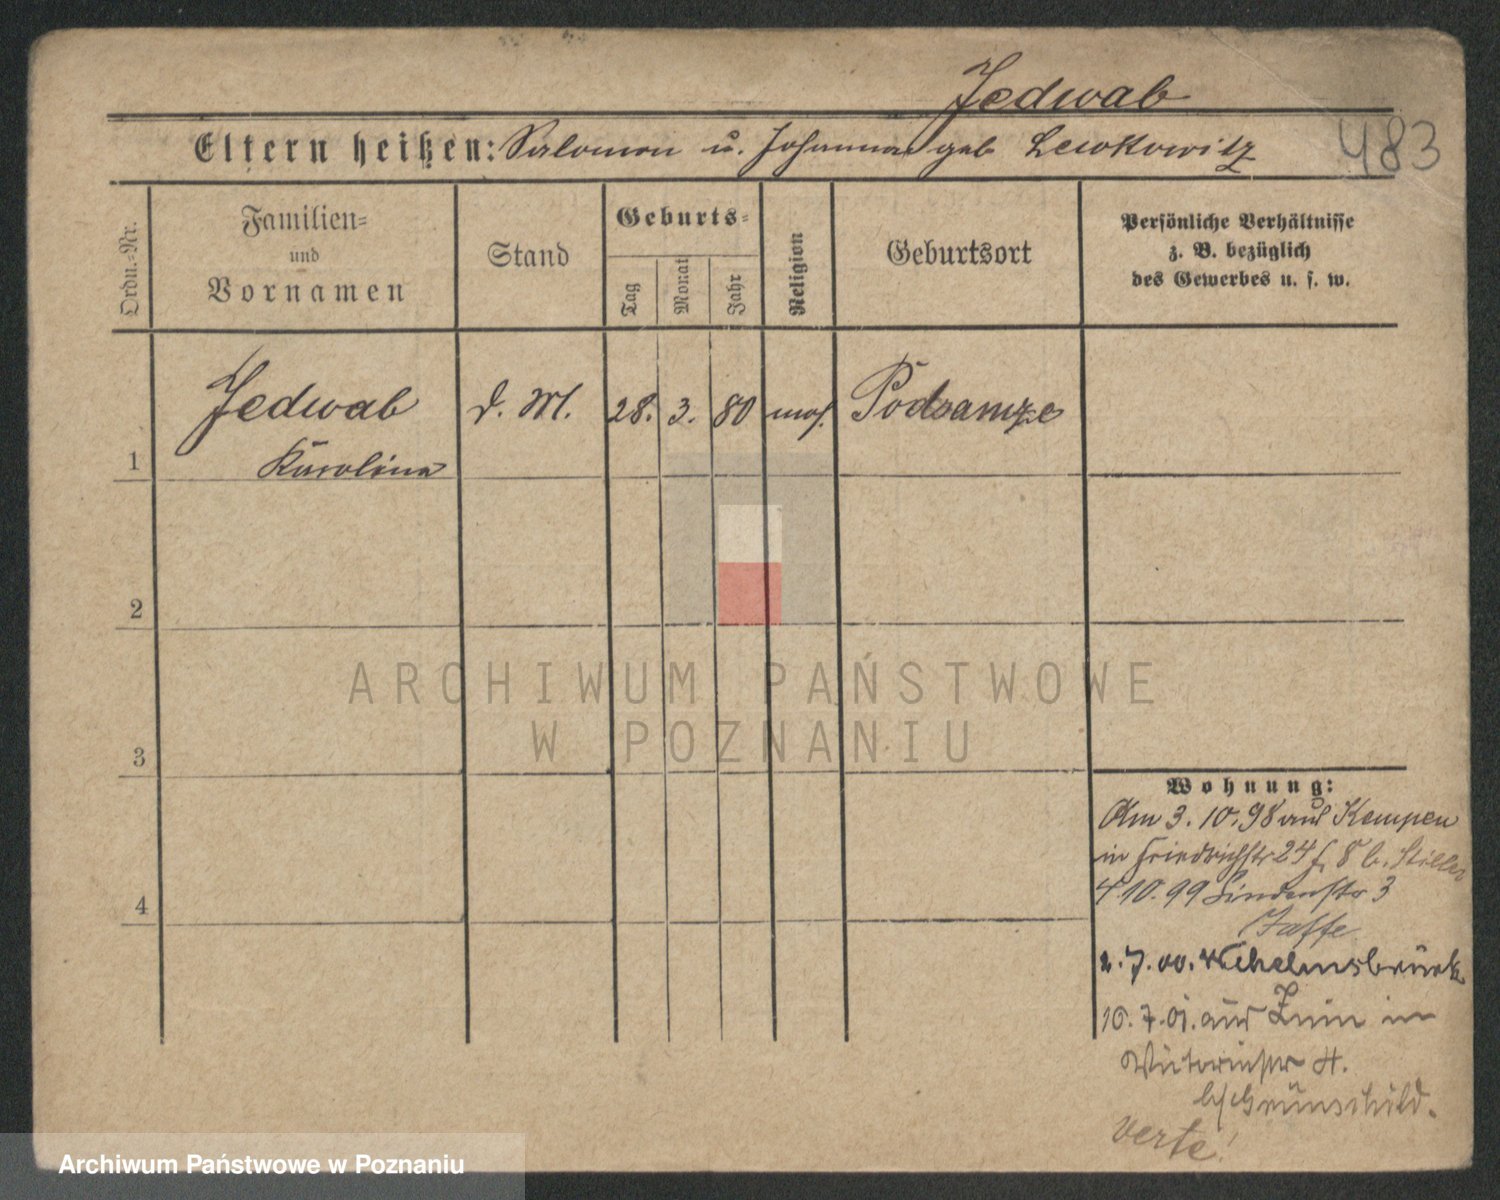 Jedwab
Eltern heißen: Salomon u. Johanna geb Lewkowitz
483
Ordn.-Nr.
Familien-
und
Vornamen
Stand
Geburts-
Tag
Monat
Jahr
Religion
Geburtsort
Persönliche Verhältnisse
z. B. bezüglich
des Gewerbes u. s. w.
1
Jedwab
Karolina
d. M.
28.
3.
80
mos.
Podsamze
2
3
4
ARCHIWUM PAŃSTWOWE
W POZNANIU
Wohnung:
Am 3.10.98 aus Kempen
in Friedrichstr 24 b. Stiller
4 10.99 Lindenstr 3
Jaffe
2.7.00. Wilhelmsbrück
10.7.01. aus Znin in
Victoriastr
b/ Grünschild.
verte!
Archiwum Państwowe w Poznaniu